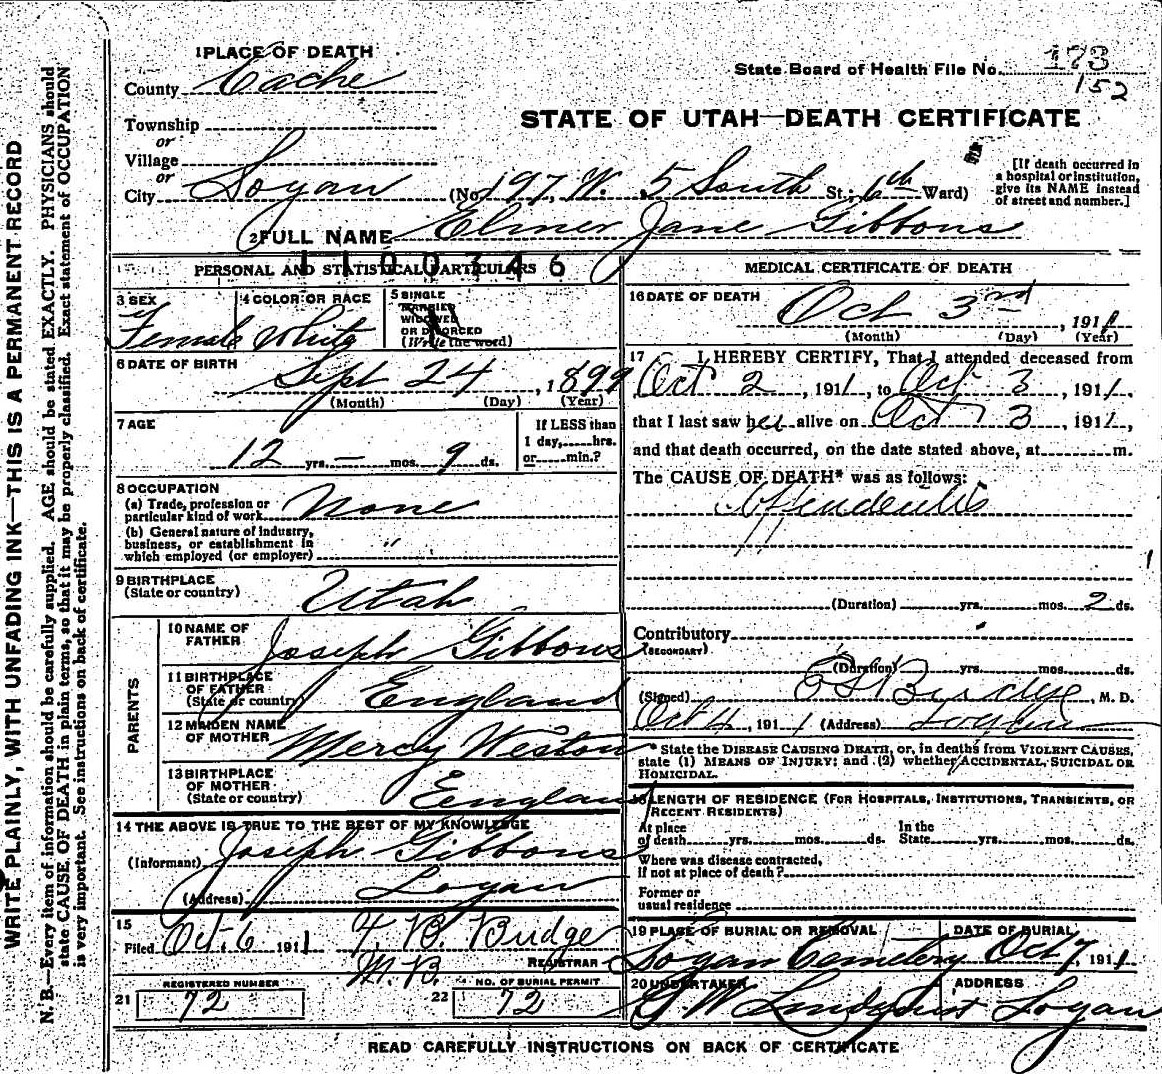 WRITE PLAINLY, WITH UNFADING INK—THIS IS A PERMANENT RECORD
N. B.—Every item of information should be carefully supplied. AGE should be stated EXACTLY. PHYSICIANS should
state CAUSE OF DEATH in plain terms, so that it may be properly classified. Exact statement of OCCUPATION
is very important. See instructions on back of certificate.
1 PLACE OF DEATH
County Cache
State Board of Health File No. 173
152
STATE OF UTAH—DEATH CERTIFICATE
Township
or
Village
or
City Logan (No 197 W. 5 South St.; 6th Ward)
[If death occurred in
a hospital or institution,
give its NAME instead
of street and number.]
2 FULL NAME Elmer Jane Gibbons
PERSONAL AND STATISTICAL PARTICULARS
3 SEX
Female
4 COLOR OR RACE
White
5 SINGLE
MARRIED
WIDOWED
OR DIVORCED
(Write the word)
6 DATE OF BIRTH
Sept 24, 1899
(Month) (Day) (Year)
7 AGE
12 yrs. — mos. 9 ds.
If LESS than
1 day, hrs.
or min.?
8 OCCUPATION
(a) Trade, profession or
particular kind of work None
(b) General nature of industry,
business, or establishment in
which employed (or employer) "
9 BIRTHPLACE
(State or country) Utah
PARENTS
10 NAME OF
FATHER Joseph Gibbons
11 BIRTHPLACE
OF FATHER
(State or country) England
12 MAIDEN NAME
OF MOTHER Mercy Weston
13 BIRTHPLACE
OF MOTHER
(State or country) England
14 THE ABOVE IS TRUE TO THE BEST OF MY KNOWLEDGE
(Informant) Joseph Gibbons
(Address) Logan
15
Filed Oct 6 1911 F. B. Budge
M. D. REGISTRAR
21 REGISTERED NUMBER
72
22 NO. OF BURIAL PERMIT
72
MEDICAL CERTIFICATE OF DEATH
16 DATE OF DEATH
Oct 3rd, 1911
(Month) (Day) (Year)
17 I HEREBY CERTIFY, That I attended deceased from
Oct 2, 1911, to Oct 3, 1911,
that I last saw her alive on Oct 3, 1911,
and that death occurred, on the date stated above, at m.
The CAUSE OF DEATH* was as follows:
Appendicitis
(Duration) yrs. mos. 2 ds.
Contributory
(SECONDARY)
(Duration) yrs. mos. ds.
(Signed) Budge, M. D.
Oct 4, 1911 (Address) Logan
* State the DISEASE CAUSING DEATH, or, in deaths from VIOLENT CAUSES,
state (1) MEANS OF INJURY; and (2) whether ACCIDENTAL, SUICIDAL OR
HOMICIDAL.
18 LENGTH OF RESIDENCE (FOR HOSPITALS, INSTITUTIONS, TRANSIENTS, OR
RECENT RESIDENTS)
At place
of death yrs. mos. ds. In the
State yrs. mos. ds.
Where was disease contracted,
if not at place of death?
Former or
usual residence
19 PLACE OF BURIAL OR REMOVAL
Logan Cemetery
DATE OF BURIAL
Oct 7, 1911
20 UNDERTAKER
G W Lindquist
ADDRESS
Logan
READ CAREFULLY INSTRUCTIONS ON BACK OF CERTIFICATE